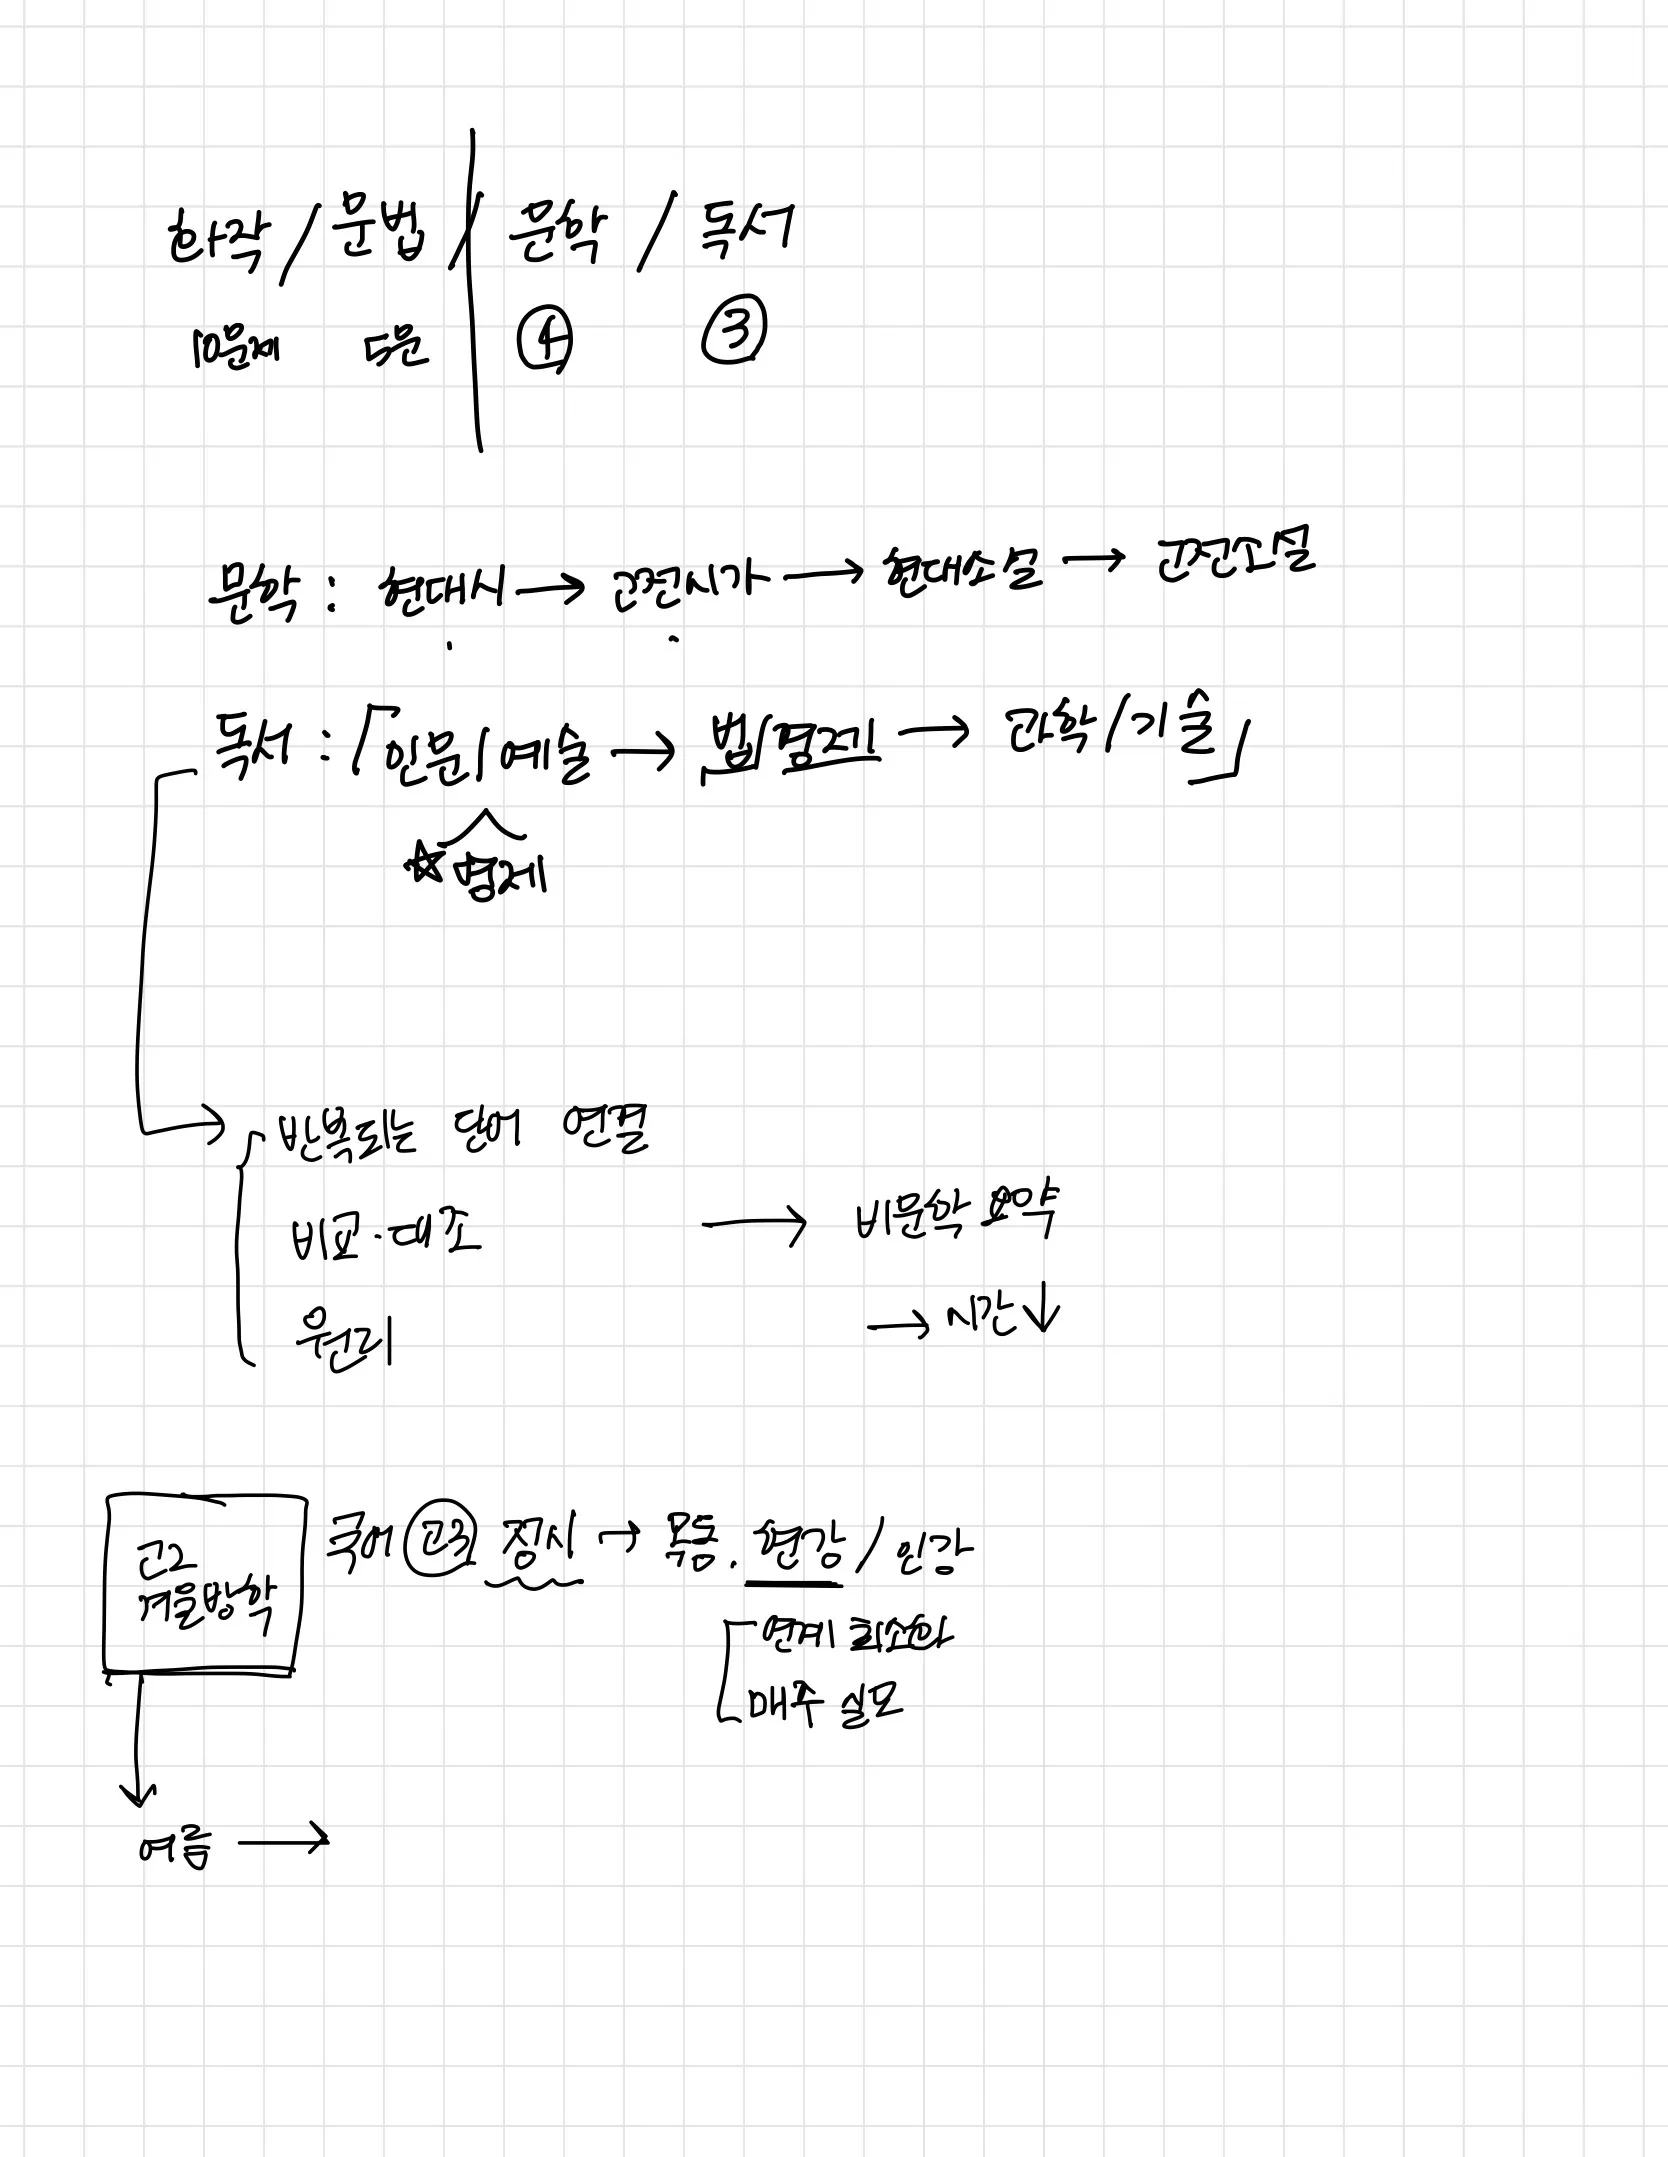 화작 / 문법 / 문학 / 독서
10문제 5문 ④ ③
문학 : 현대시 → 고전시가 → 현대소설 → 고전소설
독서 : 「인문/예술 → 법/경제 → 과학/기술」
☆명제
반복되는 단어 연결
비교·대조 → 비문학 요약
→ 시간↓
원리
고2
겨울방학
국어 고3 정시 → 목동. 현강 / 인강
연계 최소화
매주 실모
여름 →